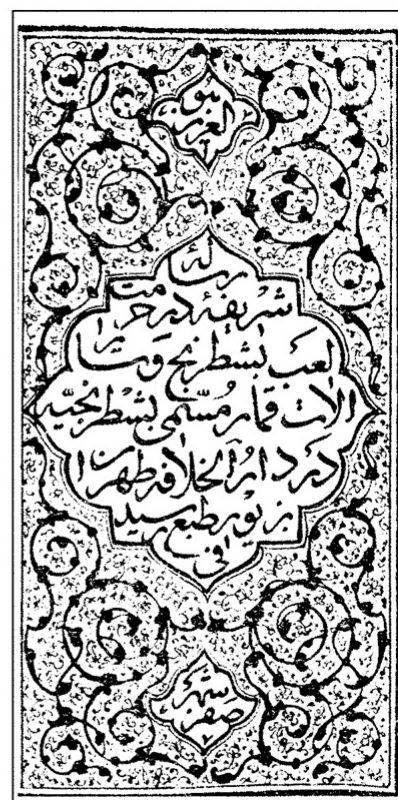 هو
العزیز
رسالهٔ
شریفهٔ در حرمت
لعب بشطرنج و سایر
الات قمار مُسمّی بشطرنجیّه
در دار الخلافه طهران
بزیور طبع رسید
فی
شهر
صفر